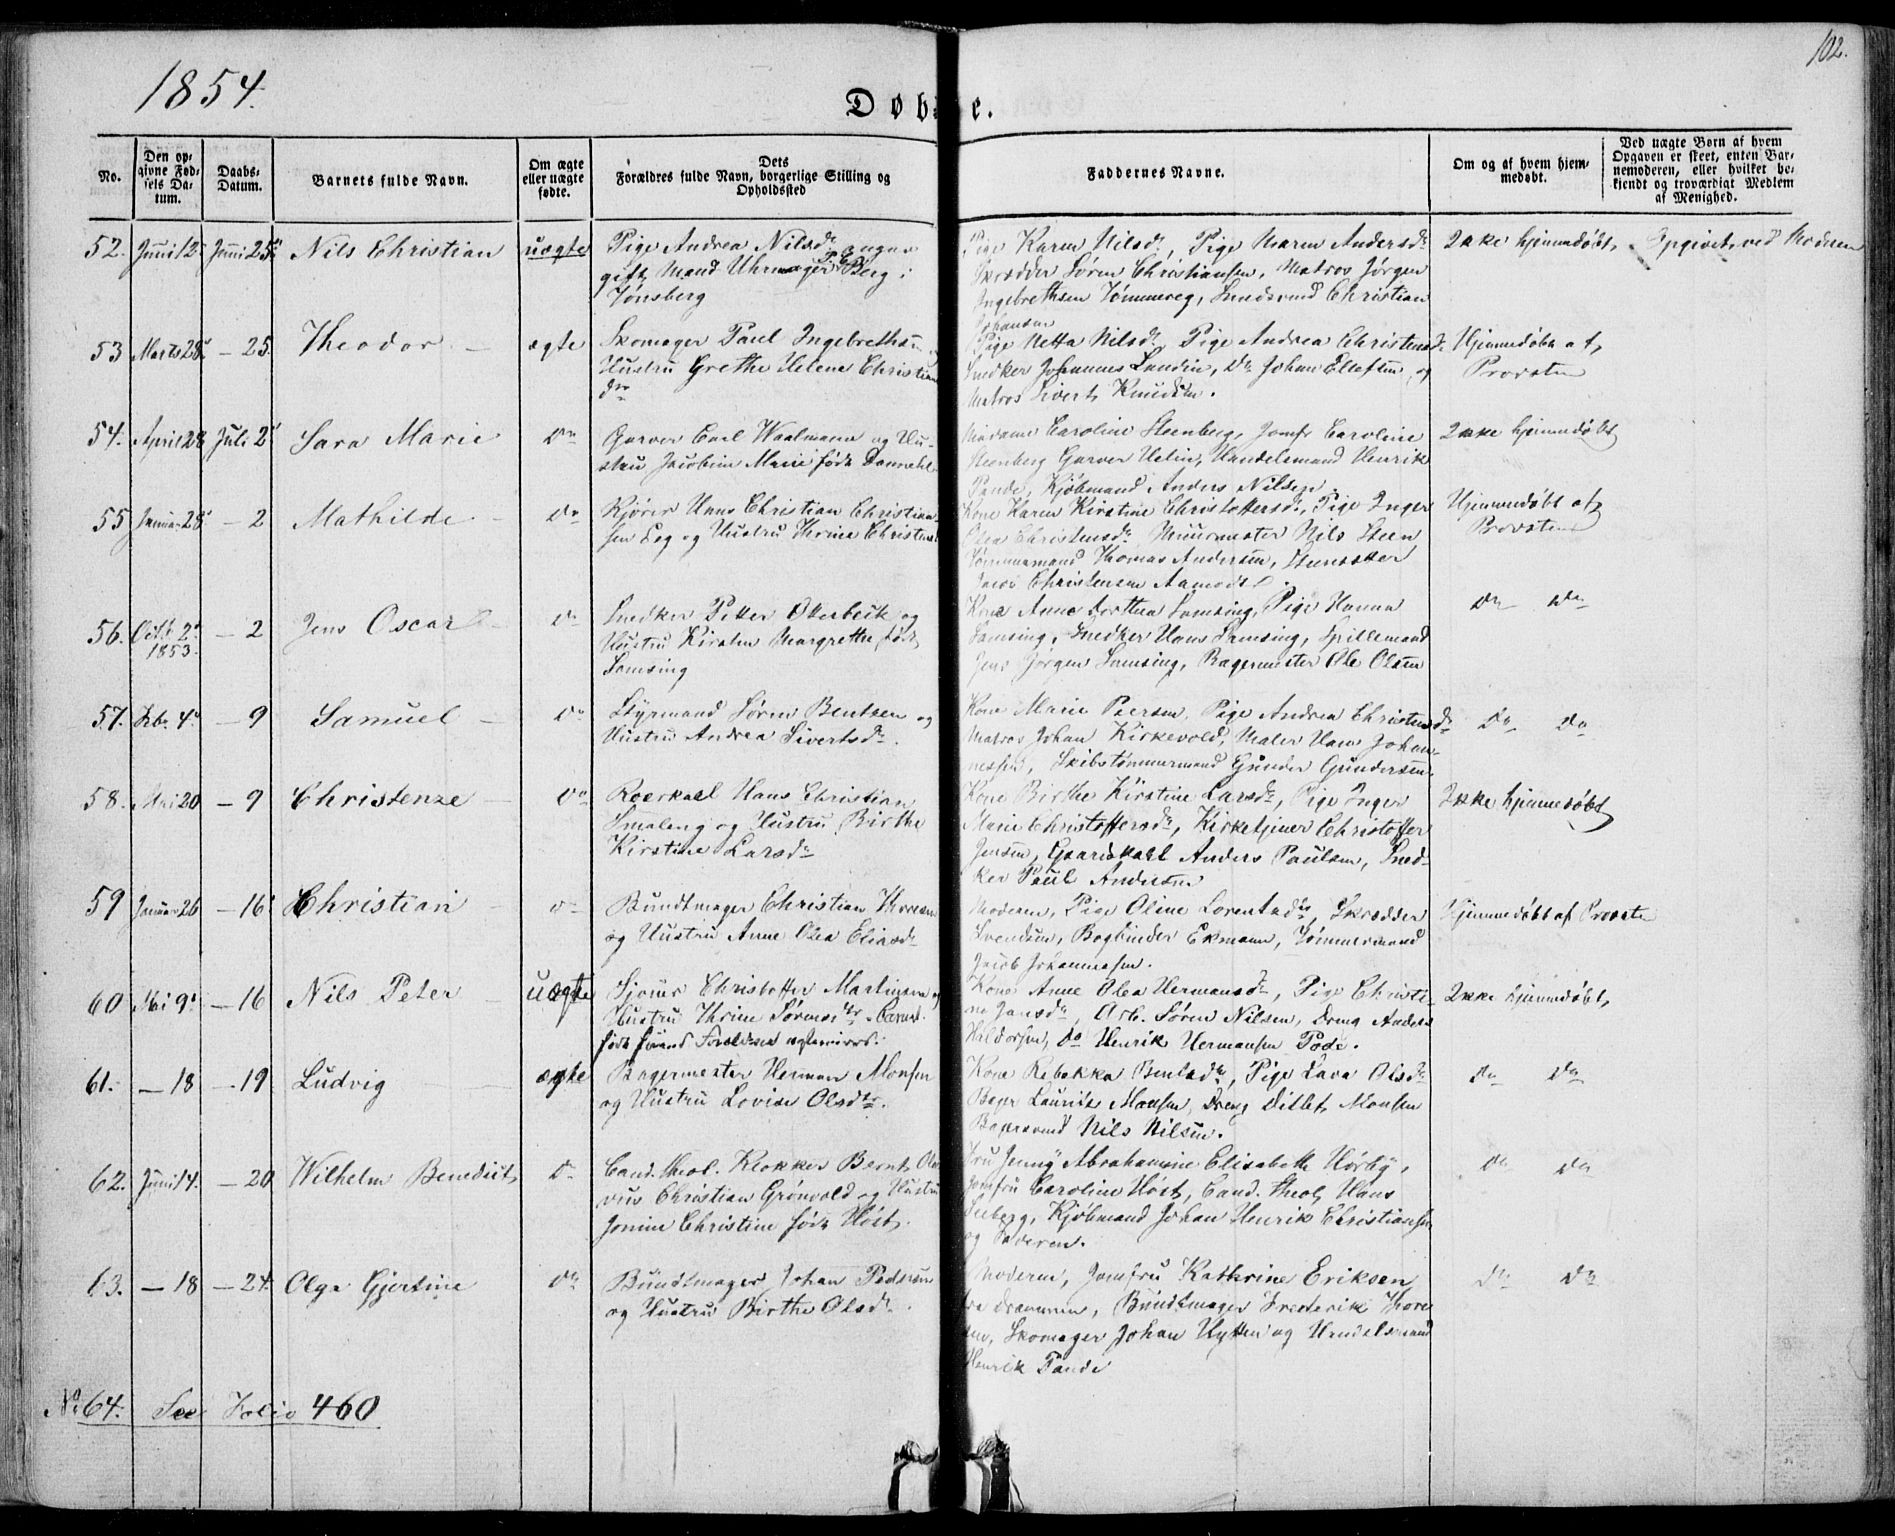 102.
1854.
Døbte.
No.
Den op-
givne Fød-
sels Da-
tum.
Daabs-
Datum.
Barnets fulde Navn.
Om ægte
eller uægte
fødte.
Dets
Forældres fulde Navn, borgerlige Stilling og
Opholdssted
Faddernes Navne.
Om og af hvem hjem-
medøbt.
Ved uægte Børn af hvem
Opgaven er skeet, enten Bar-
nemoderen, eller hvilket be-
kjendt og troværdigt Medlem
af Menighed.
52. Juni 12 Juni 25 Nils Christian uægte
Pige Andrea Nilsdr
gift Mand Uhrmager Berg i
Tønsberg
Pige Karen Nilsdr, Pige Maren Andersdr
Skrædder Søren Christiansen, Matros Jørgen
Ingebrethsen Tømmereg, Christian
Johansen
Ikke hjemmedøbt. Opgivet ved Moderen
53 Marts 28 — 25. Theodor — ægte
Skomager Paul Ingebrethsen
Hustru Grethe Helene Christian
dtr
Pige Netta Nilsdr, Pige Andrea Christensdr
Snedker Johannes Lundin, Do Johan Ellefsen og
Matros Sivert Knudsen.
Hjemmedøbt af
Provsten
54. April 28 Juli 2 Sara Marie do
Garver Carl Waalmann og Hu-
stru Jacobine Marie født
Madame Caroline Steenberg, Jomfr Caroline
Steenberg Garver Helin, Handelsmand Henrik
Pande, Kjøbmand Anders Nilsen.
Ikke hjemmedøbt
55 Januar 28 — 2 Mathilde — do
Hans Christian Christian-
sen Eeg og Hustru Thrine Christensdr
Kone Karen Kirstine Christoffersdr, Pige Inger
Olea Christensdr, Muurmester Nils Steen
Tømmermand Thomas Andersen,
Jacob Christensen Aamodt.
Hjemmedøbt af
Provsten
56. Octb. 2 — 2 Jens Oscar — do
1853.
Snedker Petter Otterbeck og
Hustru Kirsten Margrethe født
Samsing
Kone Anne Dorthea Samsing, Pige Hanna
Samsing, Snedker Hans Samsing, Spillemand
Jens Jørgen Samsing, Bagermester Ole Olsen
do do
57. Fbr. 4 — 9 Samuel — do
Styrmand Søren Bentsen og
Hustru Andrea Sivertsdr.
Kone Marie Peersen, Pige Andrea Christensdr
Matros Johan Kirkevold, Maler Hans Johan-
nessen, Skibstømmermand Gunder Gundersen.
do do
58. Mai 20 — 9 Christenze — do
Roerkarl Hans Christian
Smaleng og Hustru Birthe
Kirstine Larsdr
Kone Birthe Kirstine Larsdr, Pige Inger
Marie Christoffersdr, Kirketjener Christoffer
Jensen, Gaardskarl Anders Paulsen, Sned-
ker Paul Andersen
Ikke hjemmedøbt
59 Januar 26 — 16 Christian — do
Bundtmager Christian Thoresen
og Hustru Anne Olea Eliasdr
Moderen, Pige Oline Lorentsdr, Skrædder
Svendsen, Bogbinder Ekmann, Tømmermand
Jacob Johannessen.
Hjemmedøbt af Provsten
60 Mai 9 — 16 Nils Peter — uægte
Christoffer Martinsen og
Hustru Thrine Sørensdtr. Barnet
født førend Forældrene ægteviedes.
Kone Anne Olea Hermansdr, Pige Christi-
ne Jansdr, Arb. Søren Nilsen, Dreng Anders
Haldorsen, Do Henrik Hermansen Pode.
Ikke hjemmedøbt,
61. — 18 — 19 Ludvig ægte
Bagermester Herman Monsen
og Hustru Lovise Olsdtr.
Kone Rebekka Bentsdr, Pige Lava Olsdr
Bager Lauritz Monsen, Dreng Ditlef Monsen
Bagersvend Nils Nilsen.
do do
62. Juni 14. — 20 Wilhelm Benedict do
Cand. theol. Klokker Bernt Ola
vus Christian Grønvold og Hustru
Jonine Christine født Høst.
Fru Jenny Abrahamine Elisabeth Hørby,
Jomfru Caroline Høst, Cand. theol. Hans
Seeberg, Kjøbmand Johan Henrik Christiansen
og Faderen.
do do
63. — 18 — 24. Olga Gjertine do
Bundtmager Johan Pedersen
og Hustru Birthe Olsdr.
Moderen, Jomfru Kathrine Eriksen
fra Drammen, Bundtmager Frederik Thore
sen, Skomager Johan Hytten og Handelsmand
Henrik Pande
do do
No 64. See Folio 460